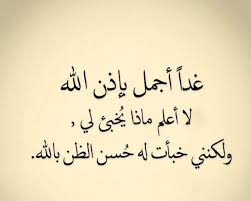 غداً أجمل بإذن الله
لا أعلم ماذا يُخبئ لي ,
ولكنني خبأت له حُسن الظن بالله.